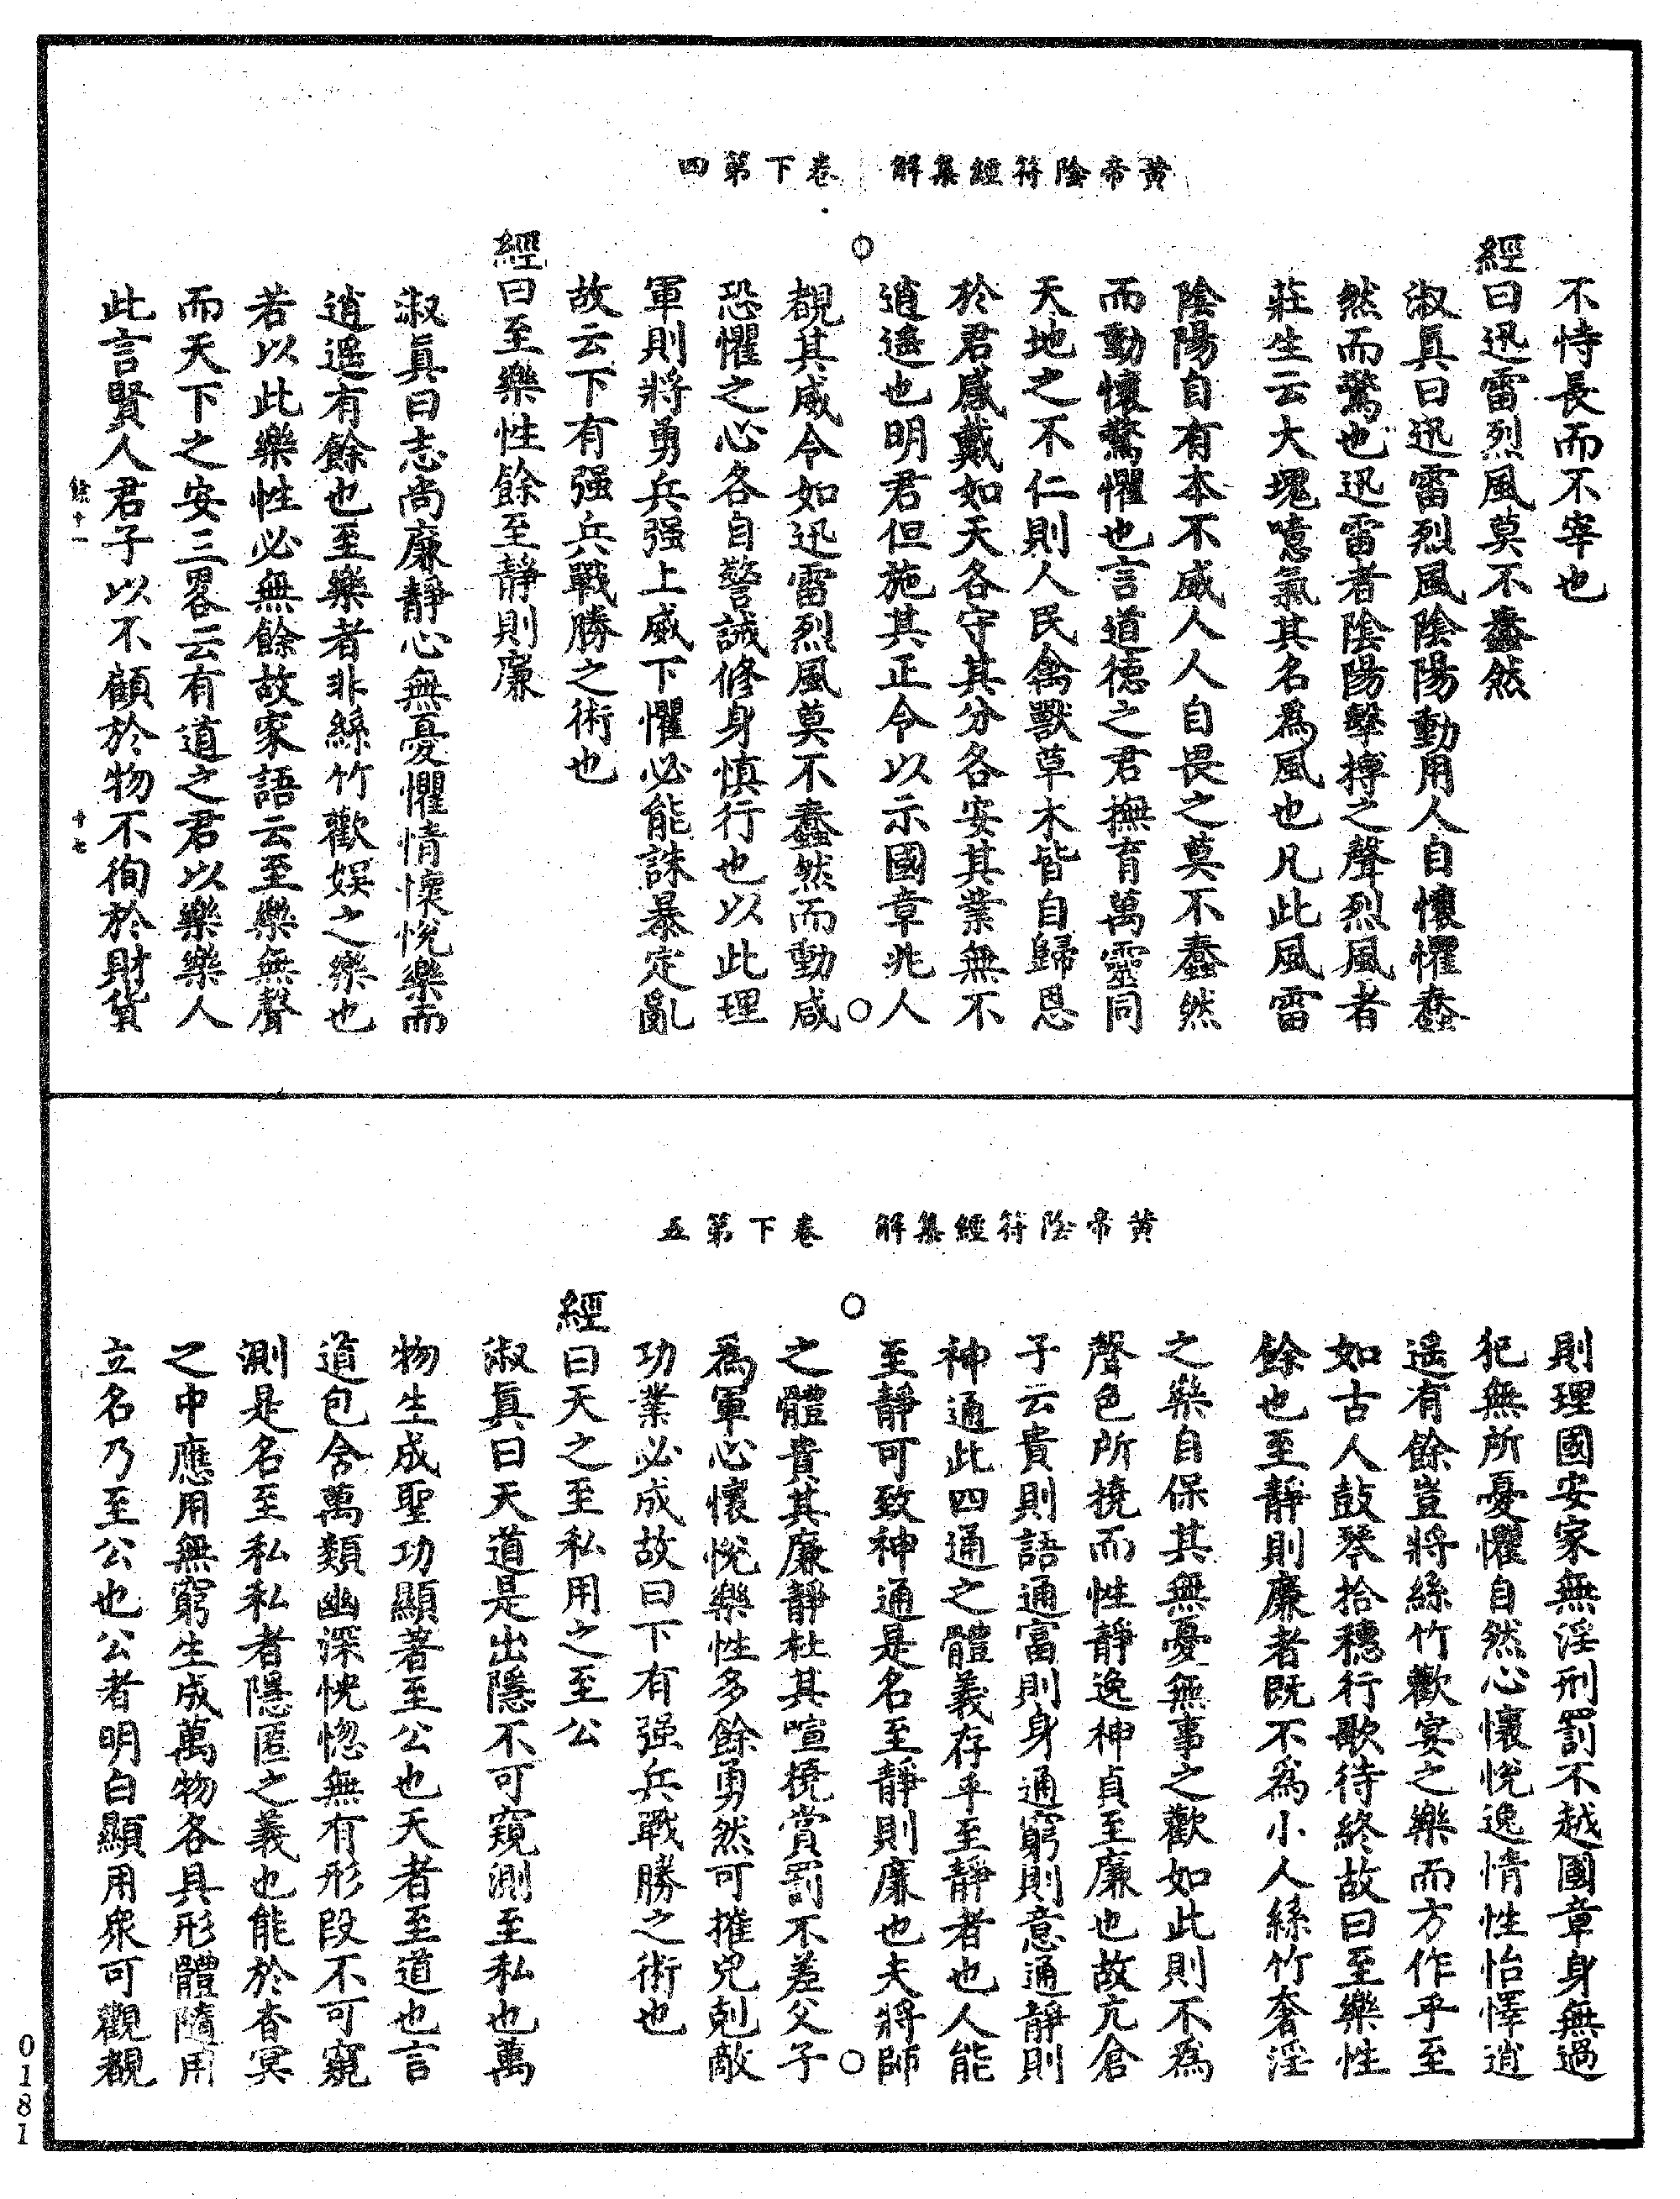 黃帝陰符經集解　卷下第四
不恃長而不宰也
經曰迅雷烈風莫不蠢然
淑真曰迅雷烈風陰陽動用人自懷懼蠢
然而驚也迅雷者陰陽擊摶之聲烈風者
莊生云大塊噫氣其名爲風也凡此風雷
陰陽自有本不威人人自畏之莫不蠢然
而動懷驚懼也言道德之君撫育萬靈同
天地之不仁則人民禽獸草木皆自歸恩
於君感戴如天各守其分各安其業無不
逍遥也明君但施其正令以示國章兆人
覩其威令如迅雷烈風莫不蠢然而動咸
恐懼之心各自警誡修身慎行也以此理
軍則將勇兵强上威下懼必能誅暴定亂
故云下有强兵戰勝之術也
經曰至樂性餘至靜則廉
淑真曰志尚廉靜心無憂懼情懷悅樂而
逍遥有餘也至樂者非絲竹歡娱之樂也
若以此樂性必無餘故家語云至樂無聲
而天下之安三畧云有道之君以樂樂人
此言賢人君子以不顧於物不徇於財貨
餘十一　十七
黃帝陰符經集解　卷下第五
則理國安家無淫刑罰不越國章身無過
犯無所憂懼自然心懷悅逸情性怡懌逍
遥有餘豈將絲竹歡宴之樂而方作乎至
如古人鼓琴拾穗行歌待終故曰至樂性
餘也至靜則廉者既不爲小人絲竹奢淫
之樂自保其無憂無事之歡如此則不爲
聲色所撓而性靜逸神貞至廉也故亢倉
子云貴則語通富則身通窮則意通靜則
神通此四通之體義存乎至靜者也人能
至靜可致神通是名至靜則廉也夫將師
之體貴其廉靜杜其喧撓賞罰不差父子
爲軍心懷悅樂性多餘勇然可摧兇剋敵
功業必成故曰下有强兵戰勝之術也
經曰天之至私用之至公
淑真曰天道是出隱不可窺測至私也萬
物生成聖功顯著至公也天者至道也言
道包含萬類幽深恍惚無有形段不可窺
測是名至私私者隱匿之義也能於杳冥
之中應用無窮生成萬物各具形體隨用
立名乃至公也公者明白顯用衆可觀覩
0181